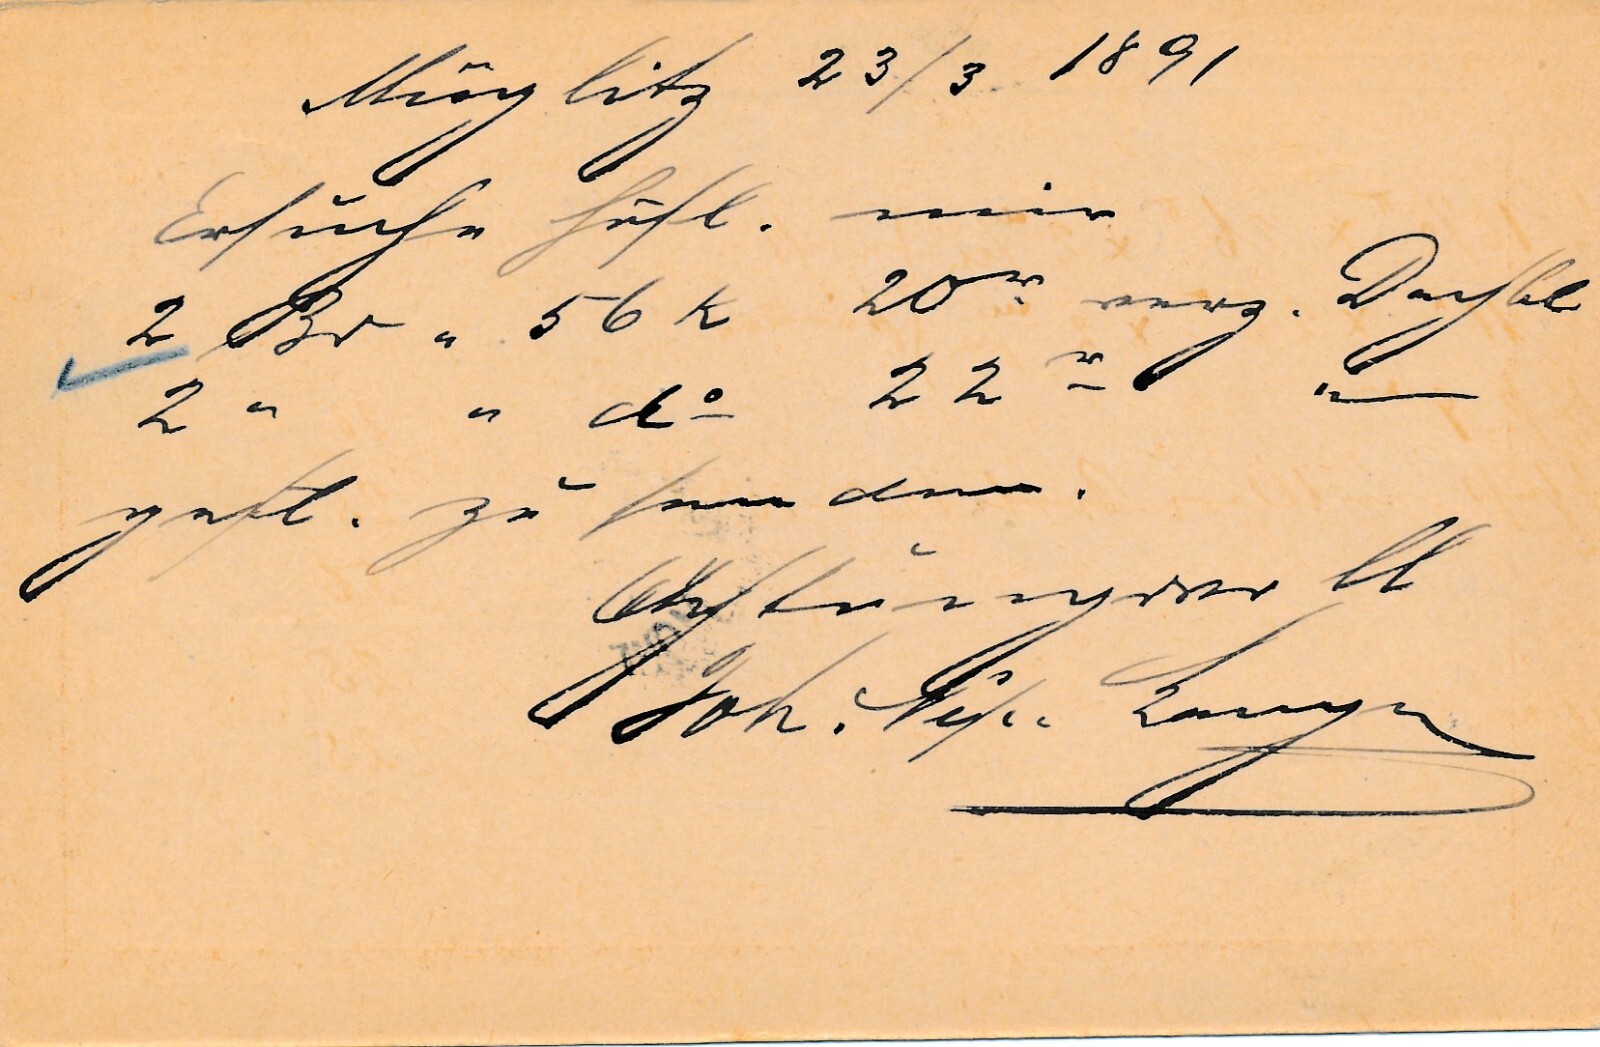 Müglitz 23/3 1891
Ersuche höfl. mir
2 Bd " 56 K 20r verz. Dachbl
2 " " do 22r "
gefl. zu senden.
Achtungsvoll
Joh. Nep. Langer